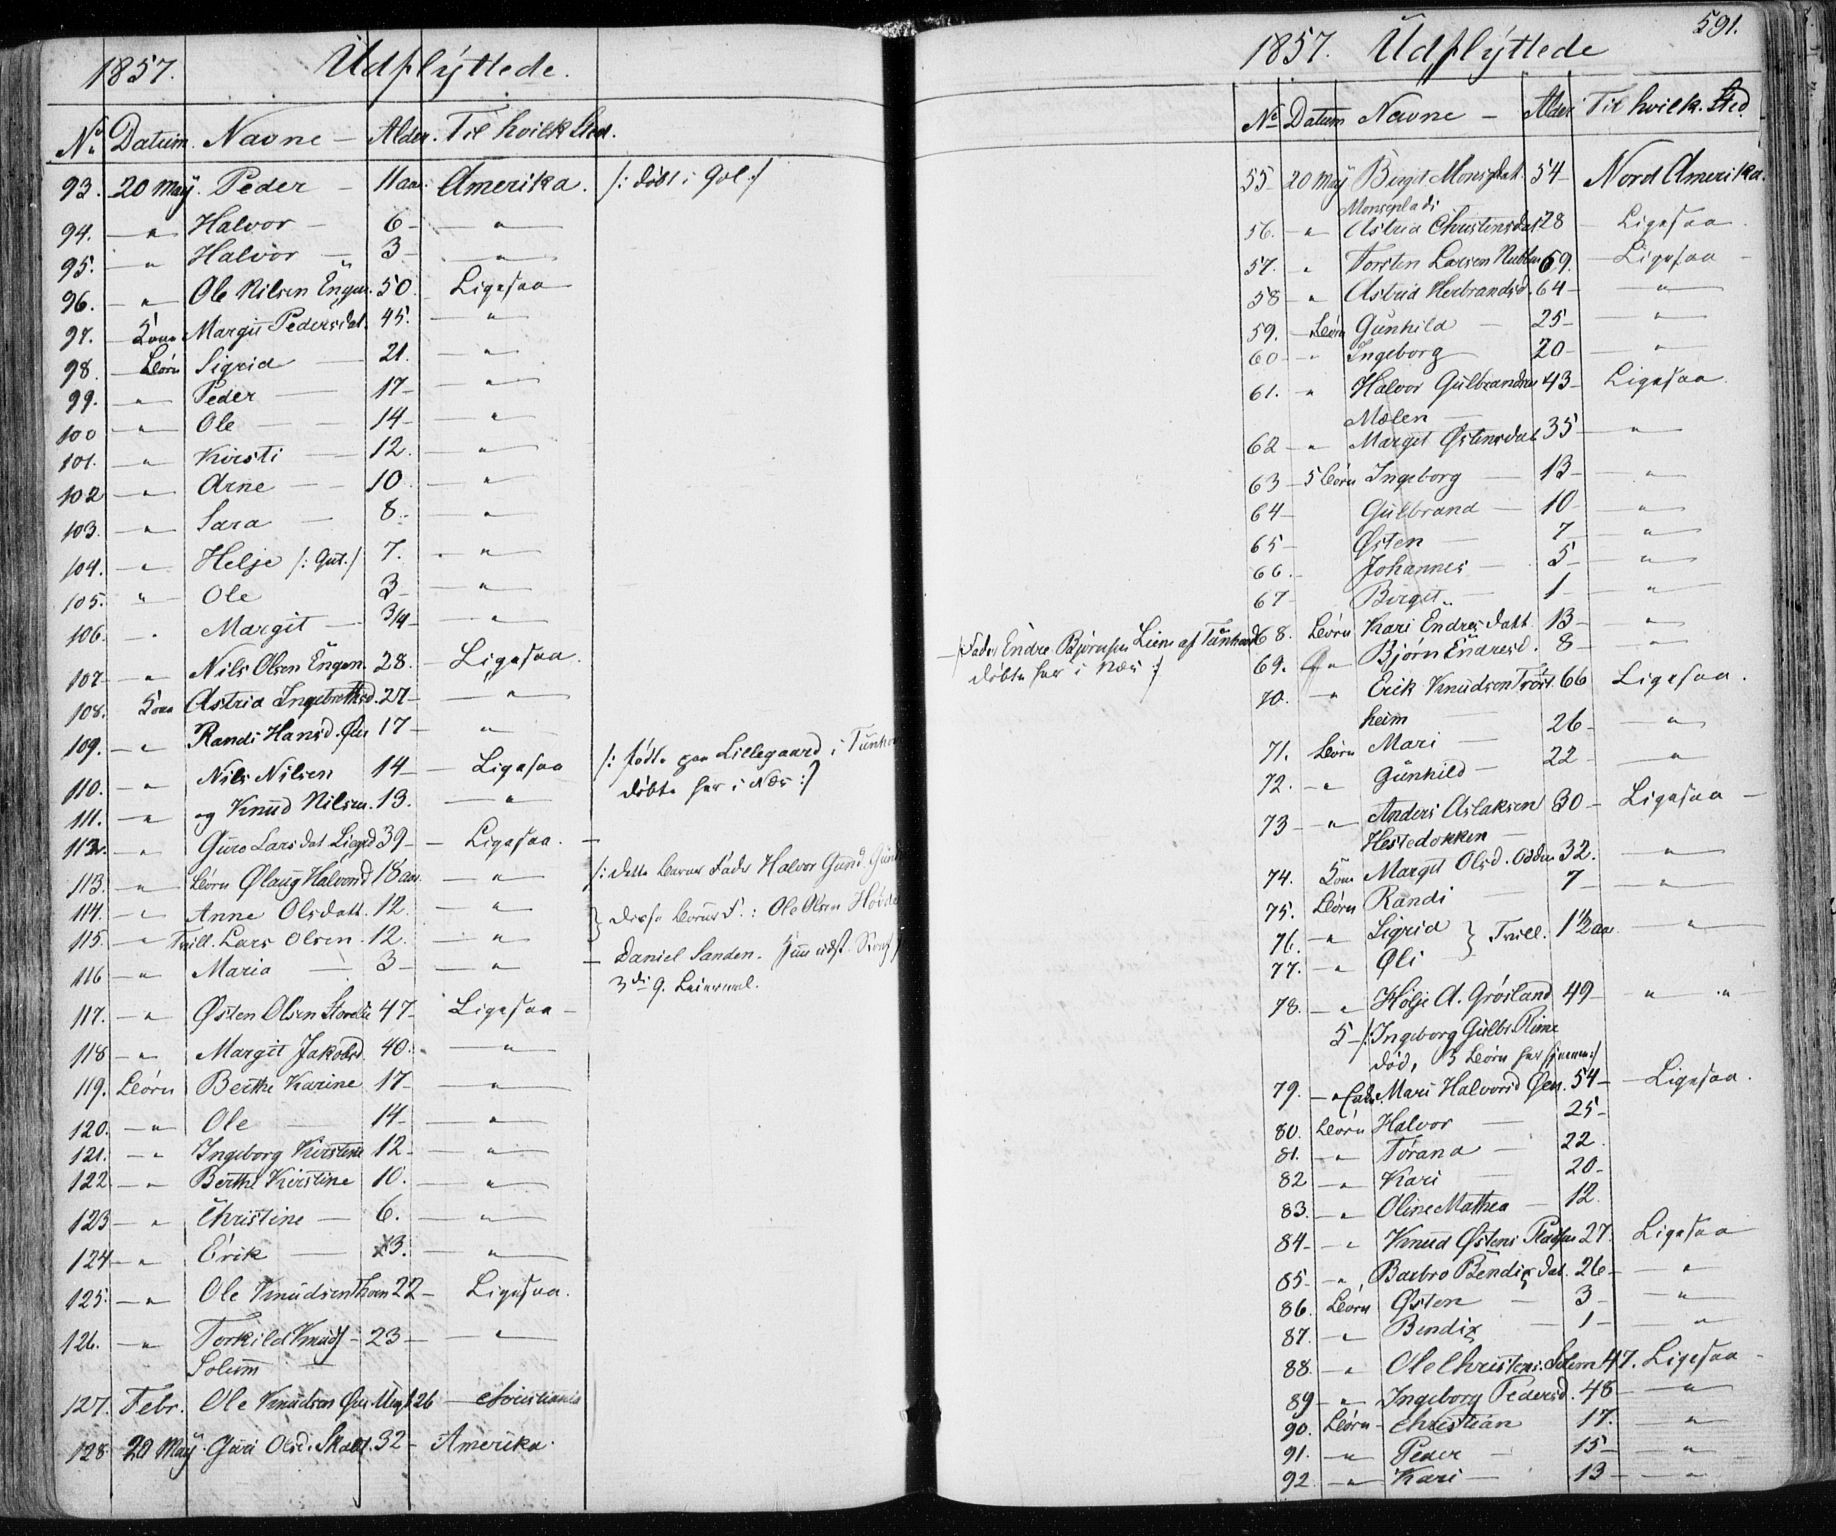 1857. Udflÿttede.
No. Datum. Navne — Alder. Til hvilk Sted.
93. 20 Maÿ. Peder — 11 aar. Amerika. /: døbt i Gol :/
94. — " Halvor — 6 — "
95. — " Halvor — 3 — "
96. — " Ole Nilsen Engen. 50. Ligesaa
97. — Kone Margit Pedersdat. 45. — "
98. — Børn Sigrid — 21. — "
99. — " Peder — 17 — "
100 — " Ole — 14 — "
101. — " Kirsti — 12. — "
102 — " Arne — 10. — "
103. — " Sara — 8. — "
104. — " Helje /: Gut. :/ 7. — "
105. — " Ole 3 — "
106. — " Margit — 3/4 — "
107 — " Nils Olsen Engen. 28. — Ligesaa.
108. Kone Astrid Ingebrethsd. 27 — "
109. — " Randi Hansd. Øen 17 — "
110. — " Nils Nilsen 14 — Ligesaa /: fødte paa Lillegaard i Tunho
111. — " og Knud Nilsen. 13. — " døbte her i Næs :/
112. — " Guro Larsdat. 39 — Ligesaa. —
113. — " Børn Ølaug Halvorsd 18 aar — " /: dette Barns Fader Halvor Gund.
114. — " Anne Olsdatt. 12. — " } disse Børns F. : Ole Olsen
115. — " Tvill. Lars Olsen. 12. — "
116 — " Maria — 3 — " — Daniel Sanden.
3di G. Leiermaal.
117. — " Østen Olsen 47 — Ligesaa —
118 — " Margit Jakobsd. 40. — "
119. Børn Berthe Karine 17 — "
120. — " Ole — 14 — "
121. — " Ingeborg Kirstine 12 — "
122 — " Berthe Kirstine 10. — "
123 — " Christine — 6. — "
124 — " Erik — 3. — "
125. — " Ole Knudsen Thoen 22 — Ligesaa.
126. — " Torkild Knuds. — 23 — "
Solum —
127. Febr. Ole Knudsen 26 — Christiania
128 20 Maÿ Guri Olsd. 32 — Amerika.
591.
1857. Udflÿttede
No Datum Navne — Alder Til hvilk. Sted.
55 — 20 Maÿ Birgit Monsdat. 54 — Nord Amerika.
Monseplads
56. — " Astrid Christensdat 28 — Ligesaa.
57. — " Torsten Larsen 69. — Ligesaa —
58 — " Astrid Herbrandsd. 64 — "
59. — Børn Gunhild — 25 — "
60 — " Ingeborg 20 — "
61. — " Halvor Gulbrandsen 43 — Ligesaa.
Mælen —
62 — " Margit Østensdat. 35 — "
63 — 5 Børn Ingeborg — 13 — "
64 — Gulbrand — 10 — "
65 — Østen — 7 — "
66. — Johannes — 5 — "
67 — Birgit 1 — "
— /: Fader Endre Bjørnsen Liene af Tunhovd 68. Børn Kari Endresdatt. 13 — "
døbte her i Næs :/ 69. — " Bjørn Endresd. 8 — "
70. — " Erik Knudsen Trøst 66 Ligesaa.
heim —
71. Børn Mari — 26 — "
72. — " Gunhild — 22 — "
73 — " Anders Aslaksen 30 — Ligesaa —
Hestedokken —
74. Kone Margit Olsd. Odden 32. — "
75. Børn Randi 7 — "
76. — " Sigrid } Tvill. 1½ aar — "
77. — " Oli
78. — " Holje A. Grøsland 49 — " "
5 — /: Ingeborg Gulbr. Rime
død, 3 Børn her hjemme :/
79. — " Mari Halvorsd Øen. 54 — Ligesaa.
80. Børn Halvor — 25 —
81. — " Torand — 22.
82 — " Kari — 20 —
83. — " Oline Mathea — 12.
84 — " Knud Østens. 27. Ligesaa
85 — " Barbro Bendixdat. 26 — "
86. Børn Østen — 3 — "
87. — " Bendix — 1 — "
88. — " Ole Christens. Solem 47. Ligesaa —
89 — " Ingeborg Pedersd. 48 — "
90. Børn — Christian 17. — "
91. — " Peder — 15 — "
92 — " Kari — 13 — "